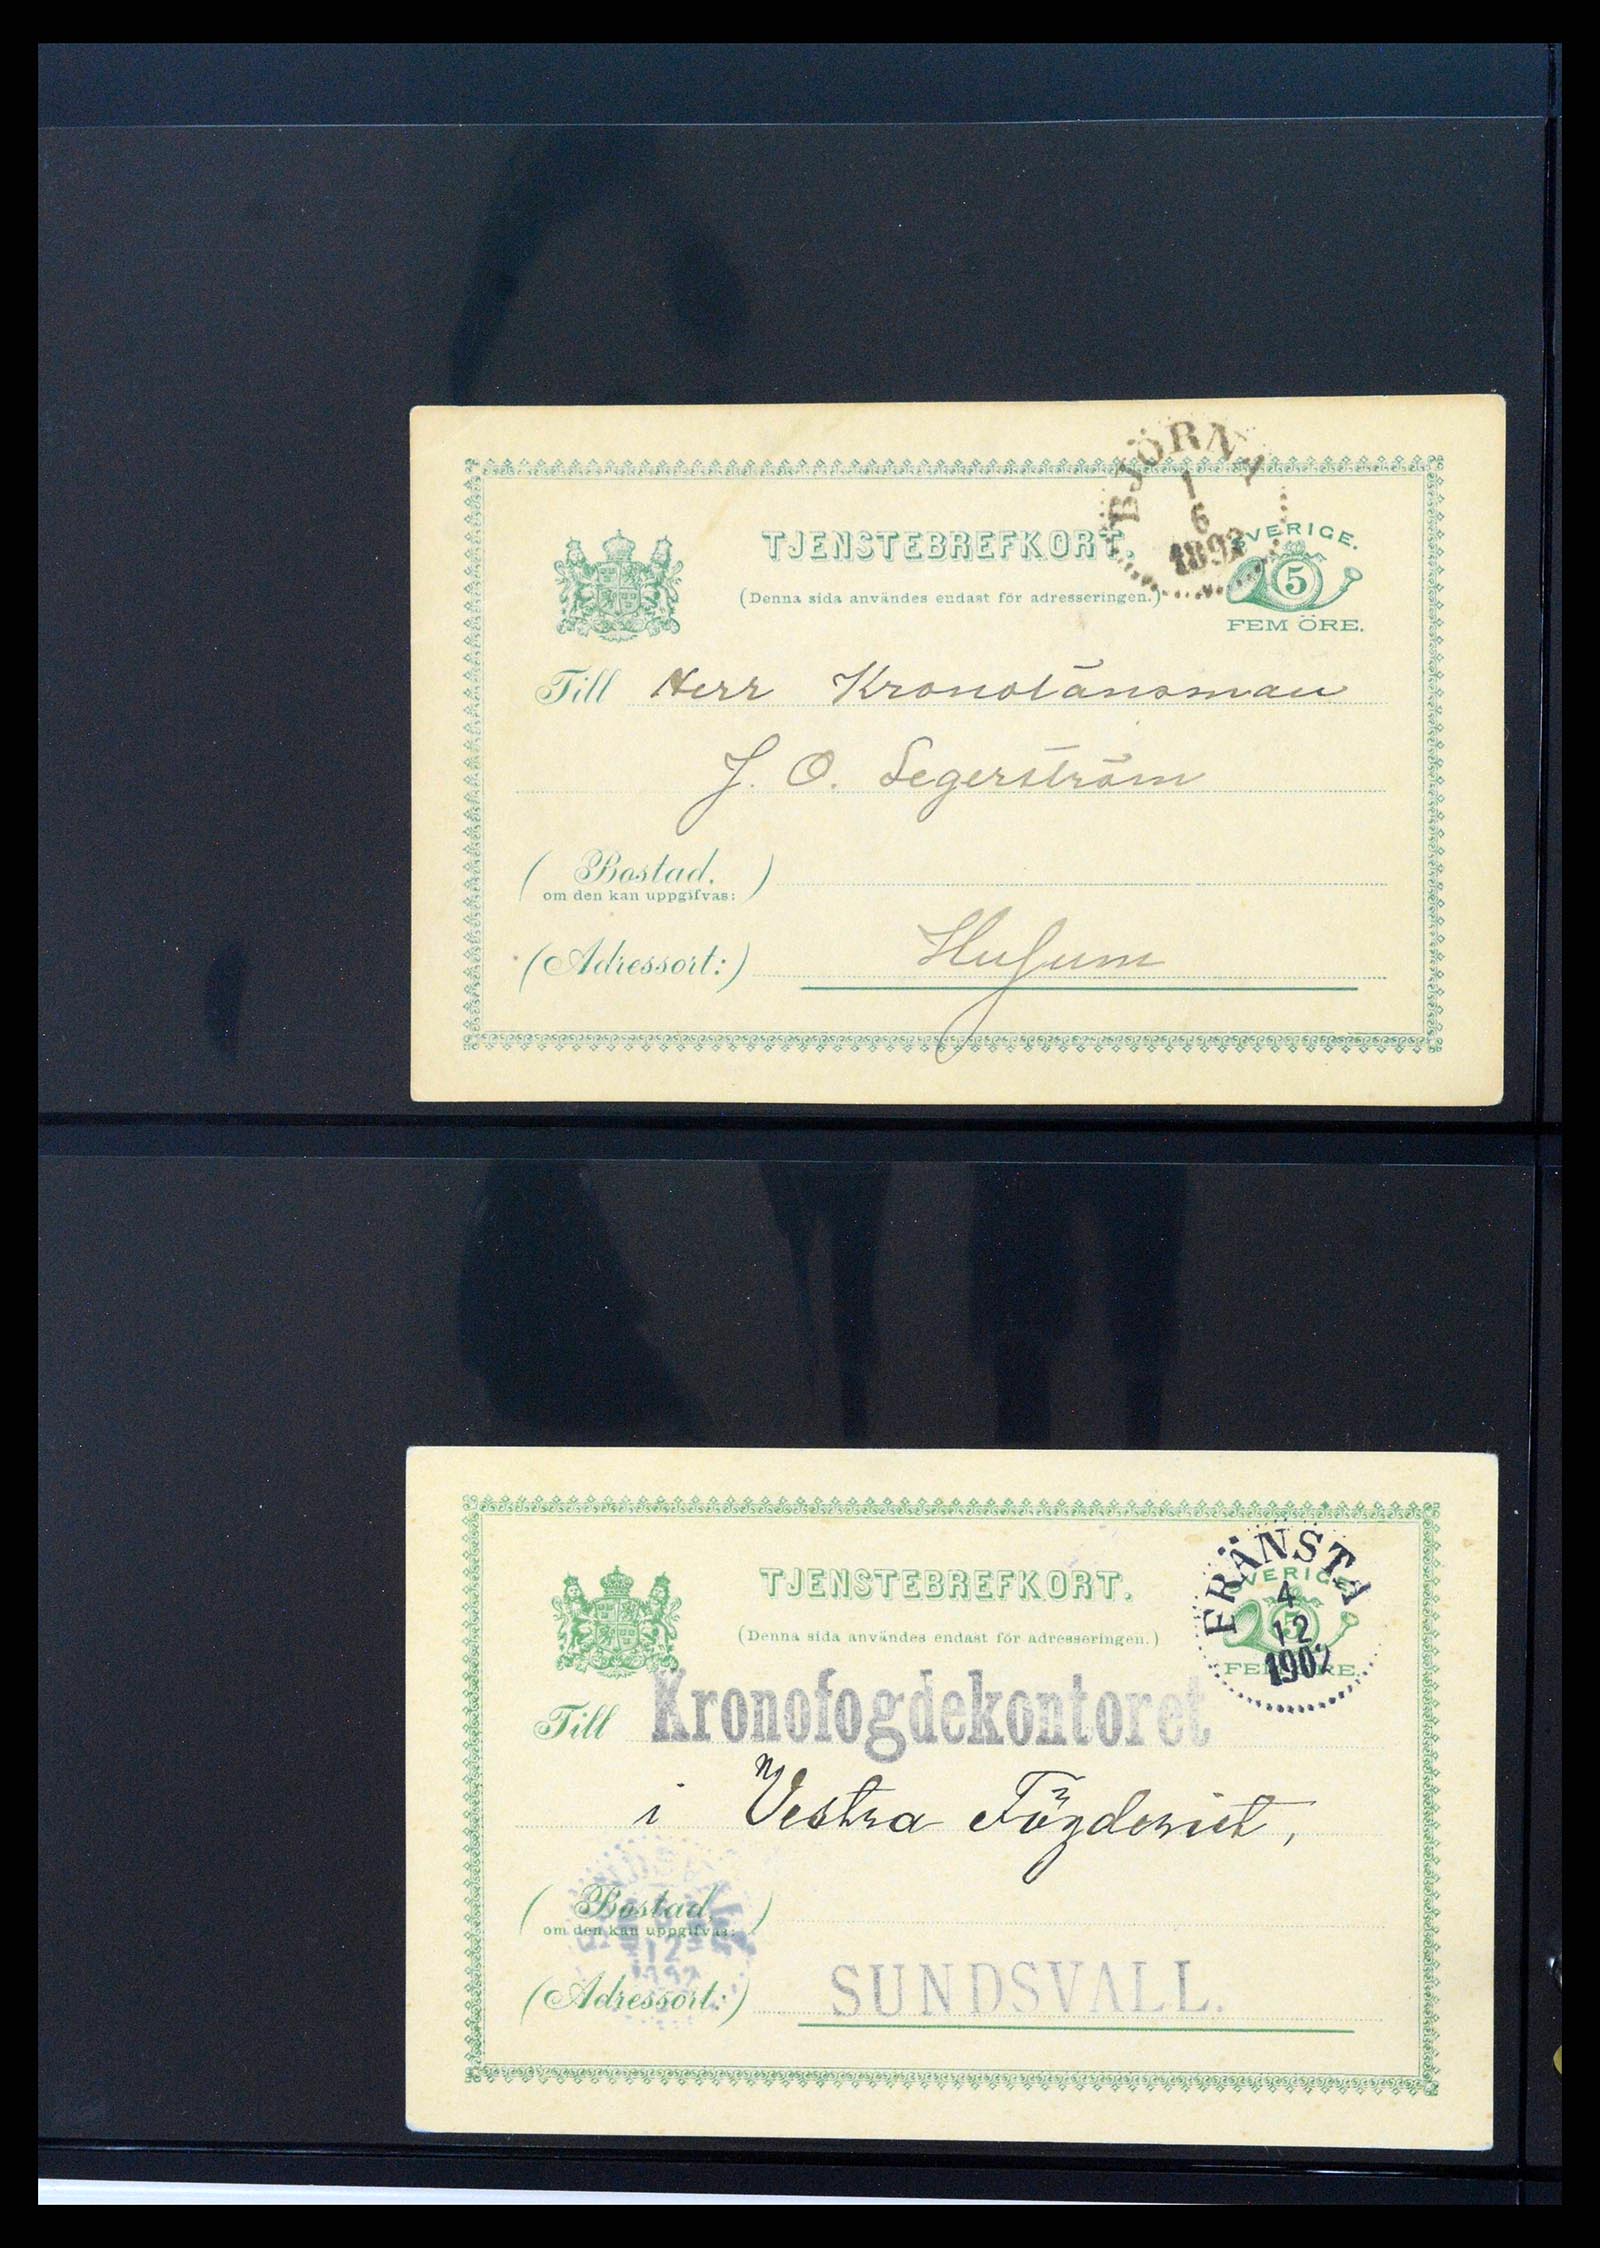 BJÖRNA
1
6
1892
TJENSTEBREFKORT.
SVERIGE.
5
(Denna sida användes endast för adresseringen.)
FEM ÖRE.
Till Herr Kronolänsman
J. O. Segerström
(Bostad.)
om den kan uppgifvas:
(Adressort:) Husum
FRÄNSTA
4
12
1902
TJENSTEBREFKORT.
SVERIGE.
5
(Denna sida användes endast för adresseringen.)
FEM ÖRE.
Till Kronofogdekontoret
i Vestra Fögderiet,
(Bostad.)
om den kan uppgifvas:
12
(Adressort:) SUNDSVALL.